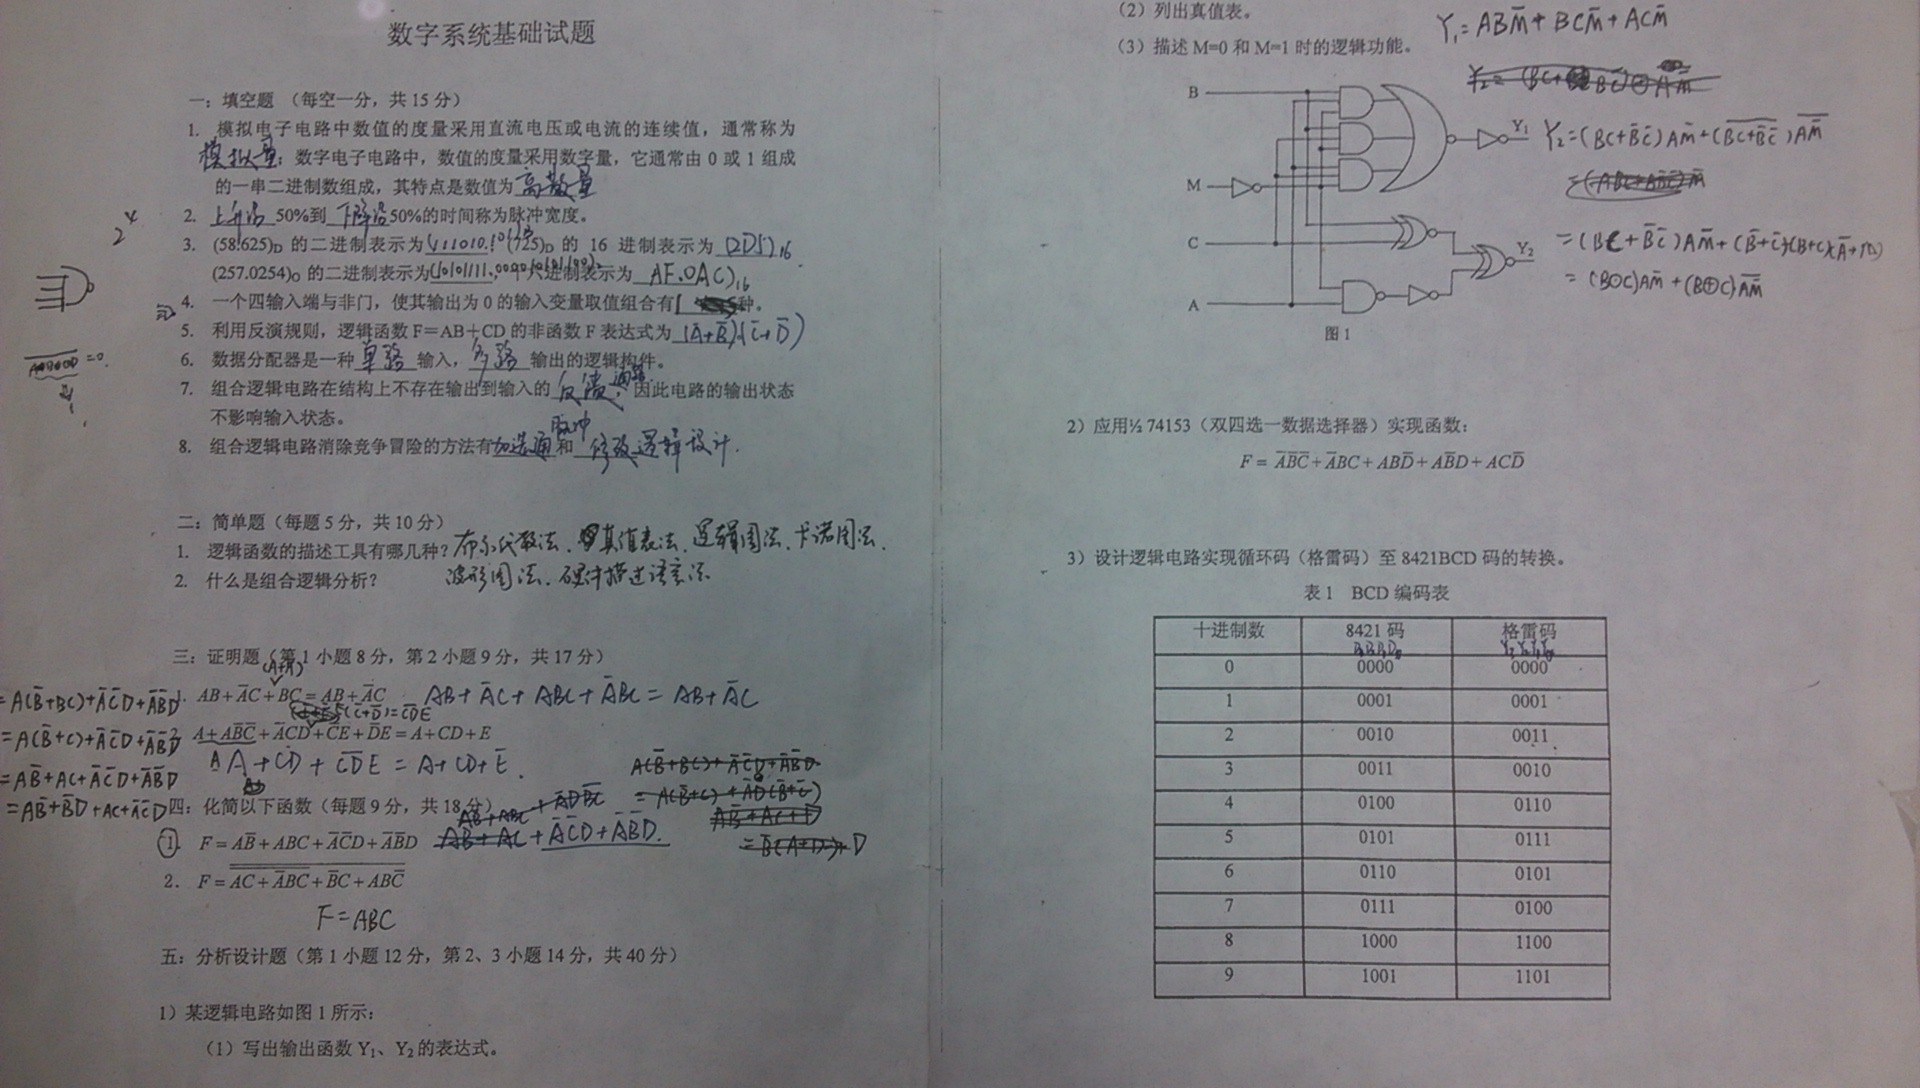 数字系统基础试题
一：填空题 （每空一分，共 15 分）
1. 模拟电子电路中数值的度量采用直流电压或电流的连续值，通常称为
模拟量；数字电子电路中，数值的度量采用数字量，它通常由 0 或 1 组成
的一串二进制数组成，其特点是数值为 离散量
2. 上升沿 50%到 下降沿 50%的时间称为脉冲宽度。
2⁴
3. (58.625)D 的二进制表示为(111010.101)₂ (725)D 的 16 进制表示为 (2D5)₁₆ .
(257.0254)O 的二进制表示为 进制表示为 AF.0AC)₁₆
4. 一个四输入端与非门，使其输出为 0 的输入变量取值组合有 1 种。
5. 利用反演规则，逻辑函数 F＝AB＋CD 的非函数 F 表达式为 (A̅+B̅)(C̅+D̅)
6. 数据分配器是一种 单路 输入， 多路 输出的逻辑构件。
7. 组合逻辑电路在结构上不存在输出到输入的 反馈通路，因此电路的输出状态
不影响输入状态。
8. 组合逻辑电路消除竞争冒险的方法有加选通脉冲和 修改逻辑设计.
二：简单题（每题 5 分，共 10 分）
1. 逻辑函数的描述工具有哪几种？布尔代数法、真值表法、逻辑图法、卡诺图法、
2. 什么是组合逻辑分析？ 波形图法、硬件描述语言法
三：证明题（第 1 小题 8 分，第 2 小题 9 分，共 17 分）
(A+A̅)
1. AB + A̅C + BC = AB + A̅C AB + A̅C + ABC + A̅BC = AB + A̅C
(C̅+D̅)=C̅D̅E
2. A + AB̅C̅ + A̅CD + C̅E + D̅E = A + CD + E
A+CD + C̅D̅E = A+CD+E.
=A(B̅+BC)+A̅C̅D+A̅B̅D
=A(B̅+C)+A̅C̅D+A̅B̅D
=AB̅+AC+A̅C̅D+A̅B̅D
=AB̅+B̅D+AC+A̅C̅D
四：化简以下函数（每题 9 分，共 18 分）
1. F = AB̅ + ABC + A̅C̅D + A̅B̅D AB̅+AC+A̅C̅D+A̅B̅D.
2. F = A̅C̅ + A̅BC + B̅C + ABC̅
F=ABC
五：分析设计题（第 1 小题 12 分，第 2、3 小题 14 分，共 40 分）
1）某逻辑电路如图 1 所示：
（1）写出输出函数 Y₁、Y₂ 的表达式。
（2）列出真值表。
（3）描述 M=0 和 M=1 时的逻辑功能。
Y₁=ABM̅+BCM̅+ACM̅
B
M
C
A
Y₁
Y₂
Y₂=(BC+B̅C̅)AM̅+(BC+B̅C̅)AM̅
=(BC+B̅C̅)AM̅+(B̅+C̅)(B+C)(A̅+M)
=(B⊙C)AM̅+(B⊕C)AM̅
图 1
2）应用½ 74153（双四选一数据选择器）实现函数：
F = A̅B̅C̅ + A̅BC + ABD̅ + AB̅D + ACD̅
3）设计逻辑电路实现循环码（格雷码）至 8421BCD 码的转换。
表 1 BCD 编码表
十进制数 8421 码 格雷码
0 0000 0000
1 0001 0001
2 0010 0011
3 0011 0010
4 0100 0110
5 0101 0111
6 0110 0101
7 0111 0100
8 1000 1100
9 1001 1101